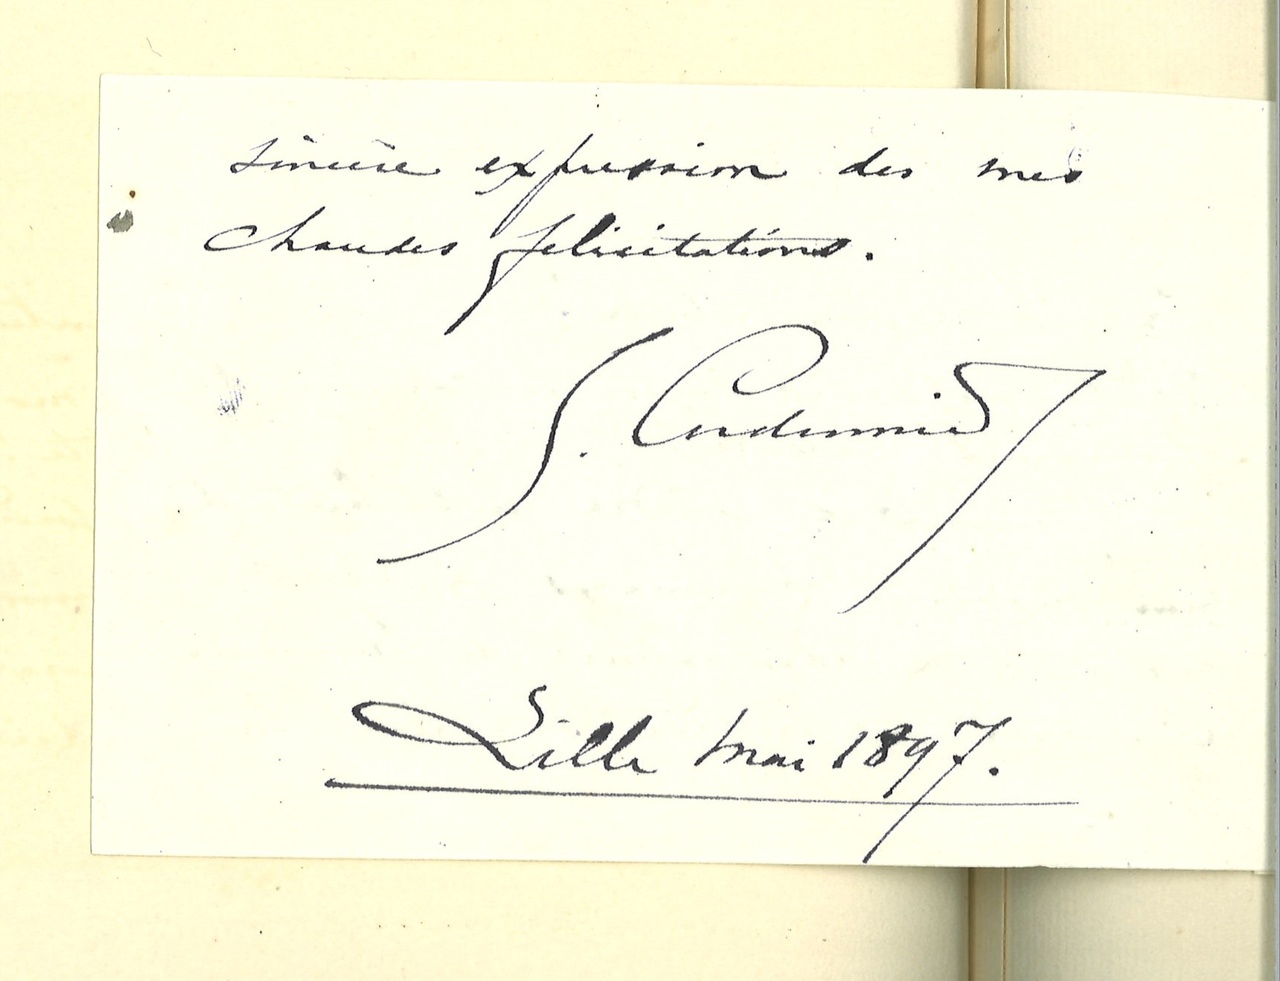 sincère expression des mes
chaudes félicitations.
S.
Lille mai 1897.